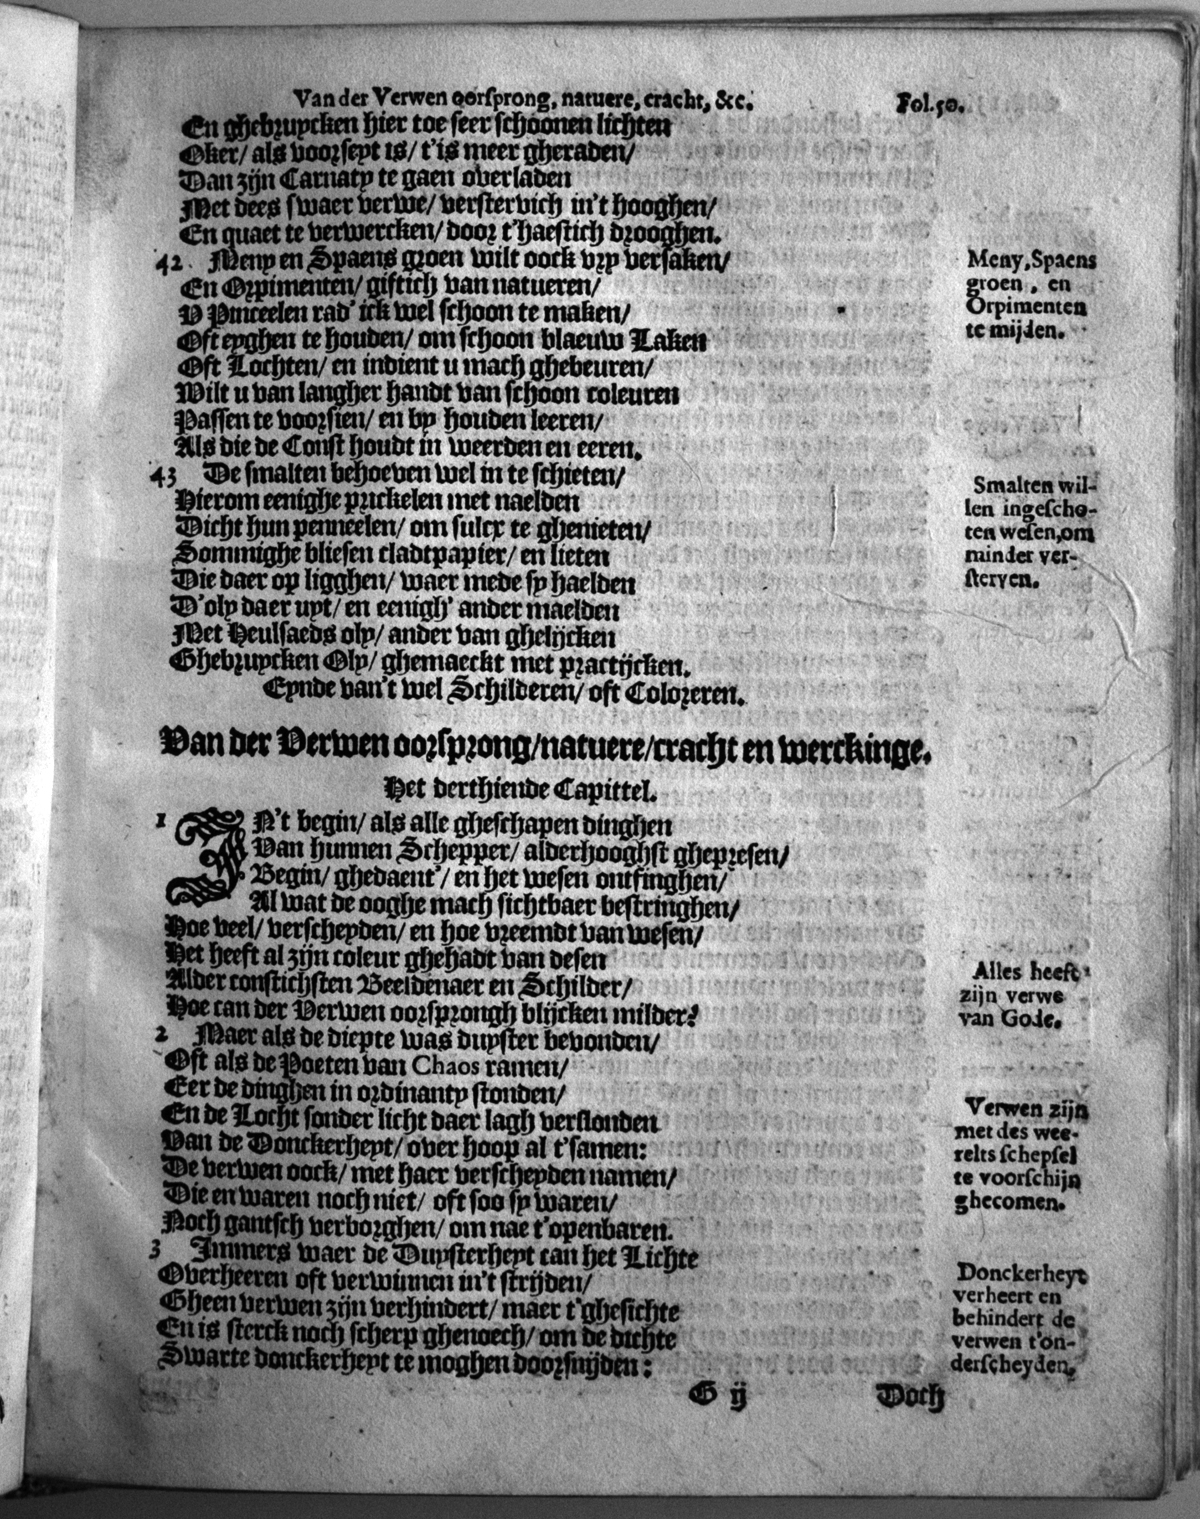 Van der Verwen oorsprong, natuere, cracht, &c. Fol.50.
En ghebruycken hier toe seer schoonen lichten
Oker/ als voorseyt is/ t'is meer gheraden/
Dan zijn Carnaty te gaen overladen
Met dees swaer verwe/ verstervich in't hooghen/
En quaet te verwercken/ door t'haestich drooghen.
42 Meny en Spaens groen wilt oock vry versaken/
En Orpimenten/ giftich van natueren/
V Pinceelen rad' ick wel schoon te maken/
Oft eyghen te houden/ om schoon blaeuw Laken
Oft Lochten/ en indient u mach ghebeuren/
Wilt u van langher handt van schoon coleuren
Passen te voorsien/ en by houden leeren/
Als die de Const houdt in weerden en eeren.
Meny, Spaens
groen, en
Orpimenten
te mijden.
43 De smalten behoeven wel in te schieten/
Hierom eenighe prickelen met naelden
Dicht hun penneelen/ om sulcx te ghenieten/
Sommighe bliesen cladtpapier/ en lieten
Die daer op ligghen/ waer mede sy haelden
D'oly daer uyt/ en eenigh' ander maelden
Met Heulsaeds oly/ ander van ghelijcken
Ghebruycken Oly/ ghemaeckt met practijcken.
Smalten wil-
len ingescho-
ten wesen, om
minder ver-
sterven.
Eynde van't wel Schilderen/ oft Coloreren.
Van der Verwen oorsprong/natuere/cracht en werckinge.
Het derthiende Capittel.
1 IN't begin/ als alle gheschapen dinghen
Van hunnen Schepper/ alderhooghst ghepresen/
Begin/ ghedaent'/ en het wesen ontfinghen/
Al wat de ooghe mach sichtbaer bestringhen/
Hoe veel/ verscheyden/ en hoe vreemdt van wesen/
Het heeft al zijn coleur ghehadt van desen
Alder constichsten Beeldenaer en Schilder/
Hoe can der Verwen oorsprongh blijcken milder?
Alles heeft
zijn verwe
van Gode.
2 Maer als de diepte was duyster bevonden/
Oft als de Poeten van Chaos ramen/
Eer de dinghen in ordinanty stonden/
En de Locht sonder licht daer lagh verslonden
Van de Donckerheyt/ over hoop al t'samen:
De verwen oock/ met haer verscheyden namen/
Die en waren noch niet/ oft soo sy waren/
Noch gantsch verborghen/ om nae t'openbaren.
Verwen zijn
met des wee-
relts schepsel
te voorschijn
ghecomen.
3 Immers waer de Duysterheyt can het Lichte
Overheeren oft verwinnen in't strijden/
Gheen verwen zijn verhindert/ maer t'ghesichte
En is sterck noch scherp ghenoech/ om de dichte
Swarte donckerheyt te moghen doorsnijden:
Donckerheyt
verheert en
behindert de
verwen t'on-
derscheyden.
G ij Doch